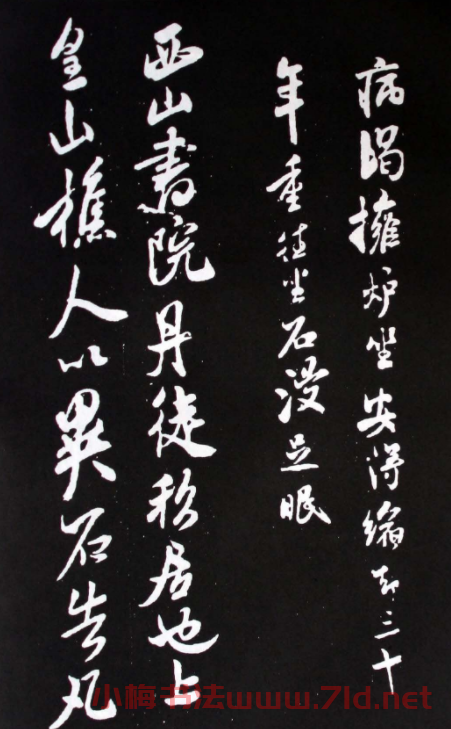 病暍擁炉坐安得縮却三十
年重往坐石浸足眠
西山書院丹徒私居也上
皇山樵人以異石告凡
小梅书法www.7ld.net